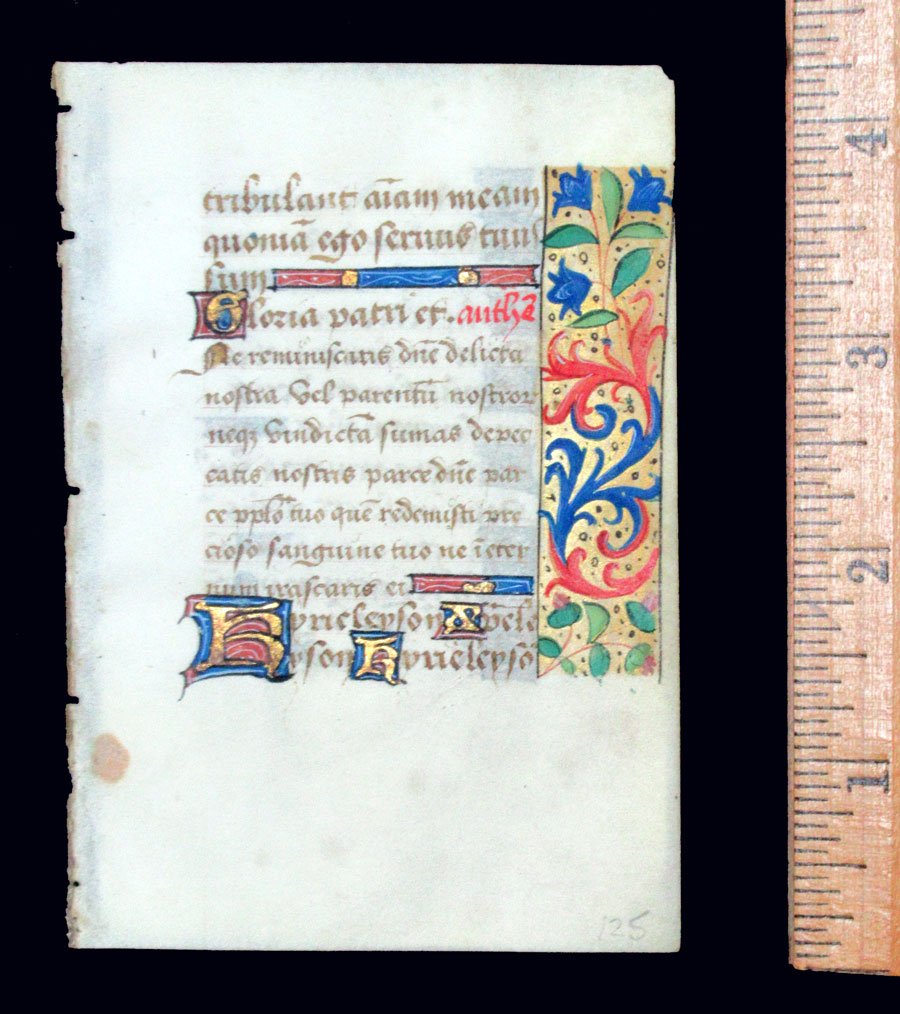 tribulant aīam meam
quoniā ego servus tuus
sum
Gloria patri et. anthā
Ne reminiscaris dn̄e delicta
nostra vel parentū nostror
neqꝫ vindictā sumas de pec
catis nostris parce dn̄e par
ce pplo tuo quē redemisti pre
cioso sanguine tuo ne ī eter
num irascaris ei
Kyrieleyson Xp̄ele
yson Kyrieleysō
125
4
3
2
1